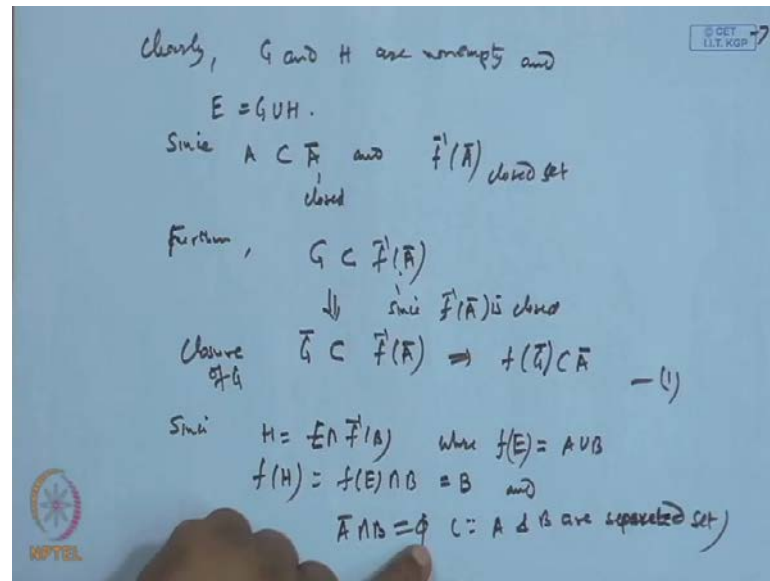 © CET
I.I.T. KGP
Clearly, G and H are nonempty and
E = G ∪ H.
Since A ⊂ Ā and f⁻¹(Ā) closed set
closed
Further, G ⊂ f⁻¹(Ā)
⇓ since f⁻¹(Ā) is closed
Closure of G Ḡ ⊂ f⁻¹(Ā) ⇒ f(Ḡ) ⊂ Ā — (1)
Since H = E ∩ f⁻¹(B) where f(E) = A ∪ B
f(H) = f(E) ∩ B = B and
Ā ∩ B = ϕ (∵ A & B are separated set)
NPTEL